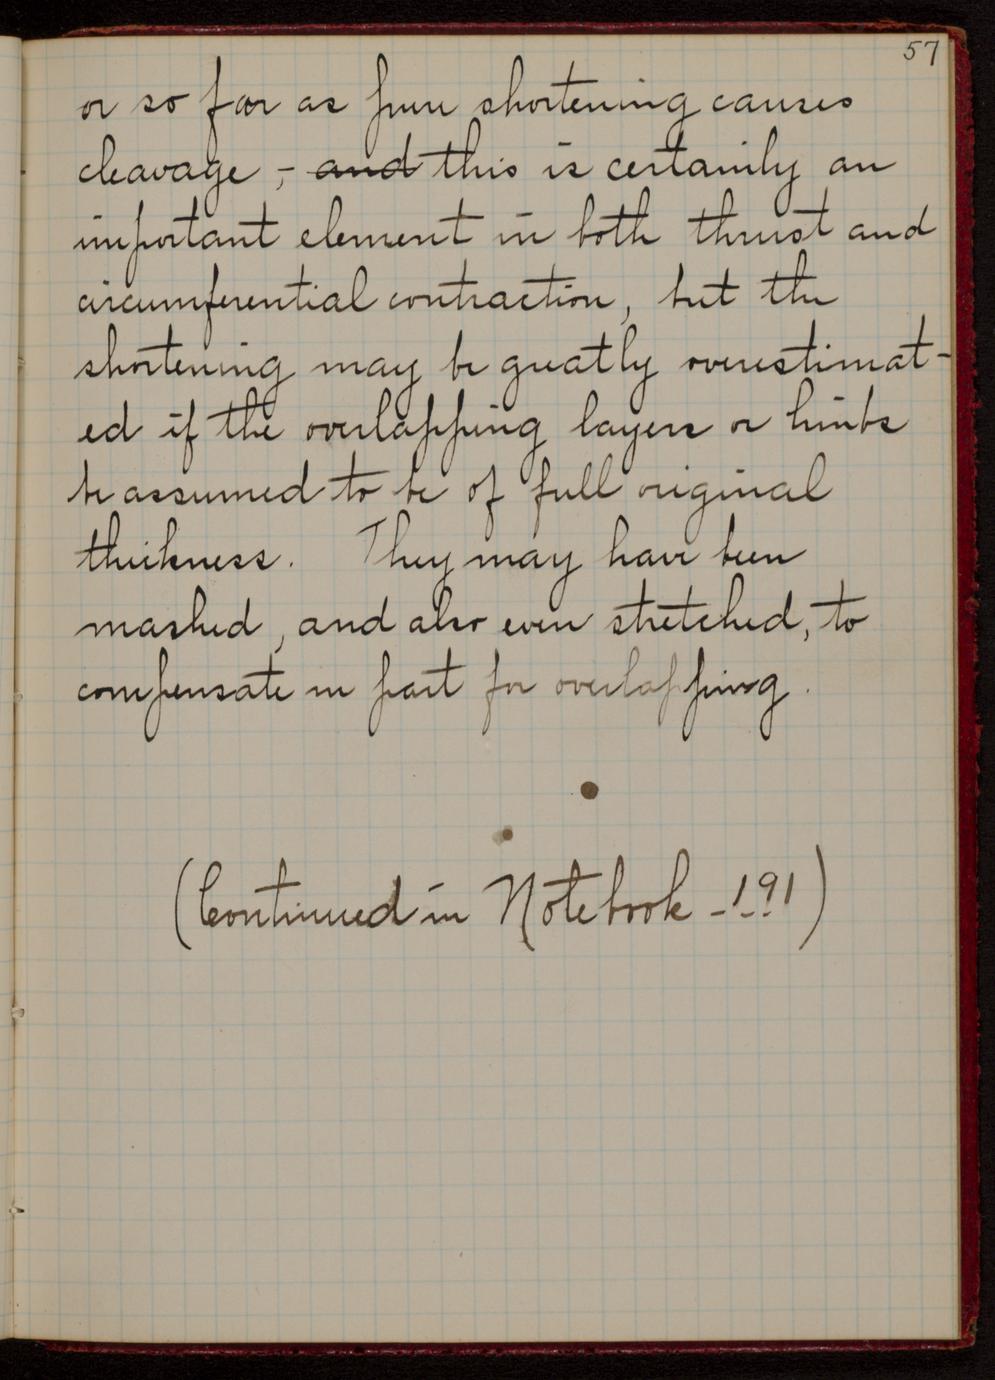 57
or so far as pure shortening causes
cleavage ; and this is certainly an
important element in both thrust and
circumferential contraction, but the
shortening may be greatly overestimat-
ed if the overlapping layers or limbs
be assumed to be of full original
thickness. They may have been
mashed, and also even stretched, to
compensate in part for overlapping.
(Continued in Notebook 191)